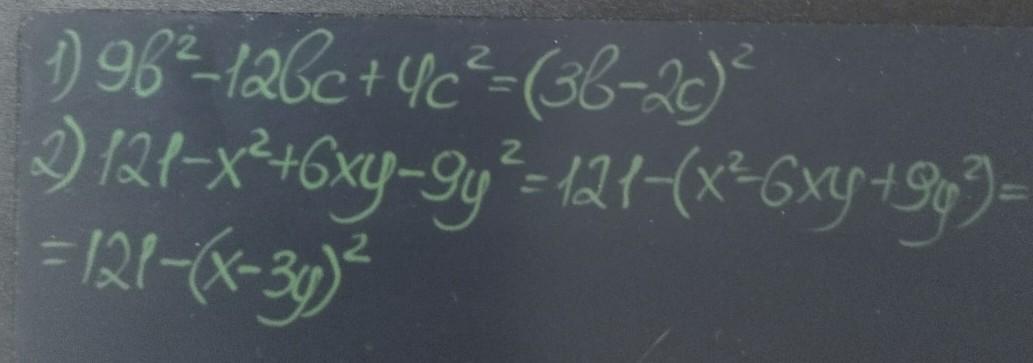 1) 9b²-12bc+4c²=(3b-2c)²
2) 121-x²+6xy-9y²=121-(x²-6xy+9y²)=
=121-(x-3y)²